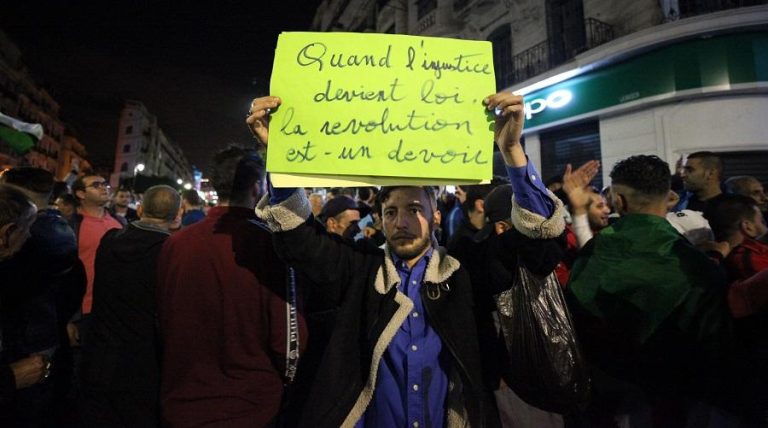 Quand l'injustice
devient loi,
la revolution
est-un devoir
oppo